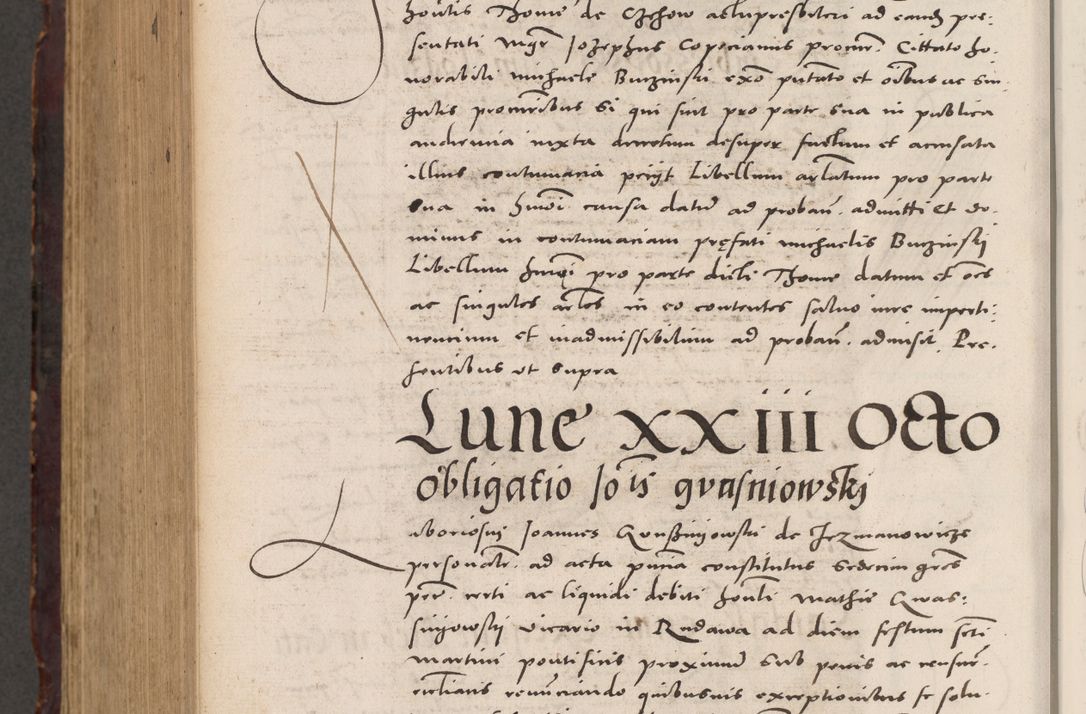 honlis Thome de Czchow actu presbiteri ad eandem pre:
sentati Mgr Jozephus Copecianus procur. Cittato ho-
norabili Michaele Buczinski exo putato et oibus ac sin-
gulis procuribus si qui sint pro parte sua in publica
audiencia iuxta decretum desuper factum et accusata
illius contumacia periit Libellum arlatum pro parte
sua in hmoi causa datum ad proban. admitti Et do-
minus in contumaciam prefati Michaelis Buczinskij
Libellum hmoi pro parte dicti Thome datum et oes
ac singulos arlos in eo contentos saluo iure imperti:
nencium et inadmissibilium ad proban. admisit. Pre-
sentibus vt supra
Lune XXIII Octo
Obligatio Jois gvasniowskj
Laboriosus Joannes Qvasznyowski de Jezmanowicze
personalr. ad acta pncia constitutus sedecim gros
pecc. certi ac liquidi debiti honli Mathie Qwas:
snyowskj vicario in Rudawa ad diem festum scti
Martini pontificis proximum sub penis ac censur.
ecclianis renunciando quibusuis exceptionibus se solu-